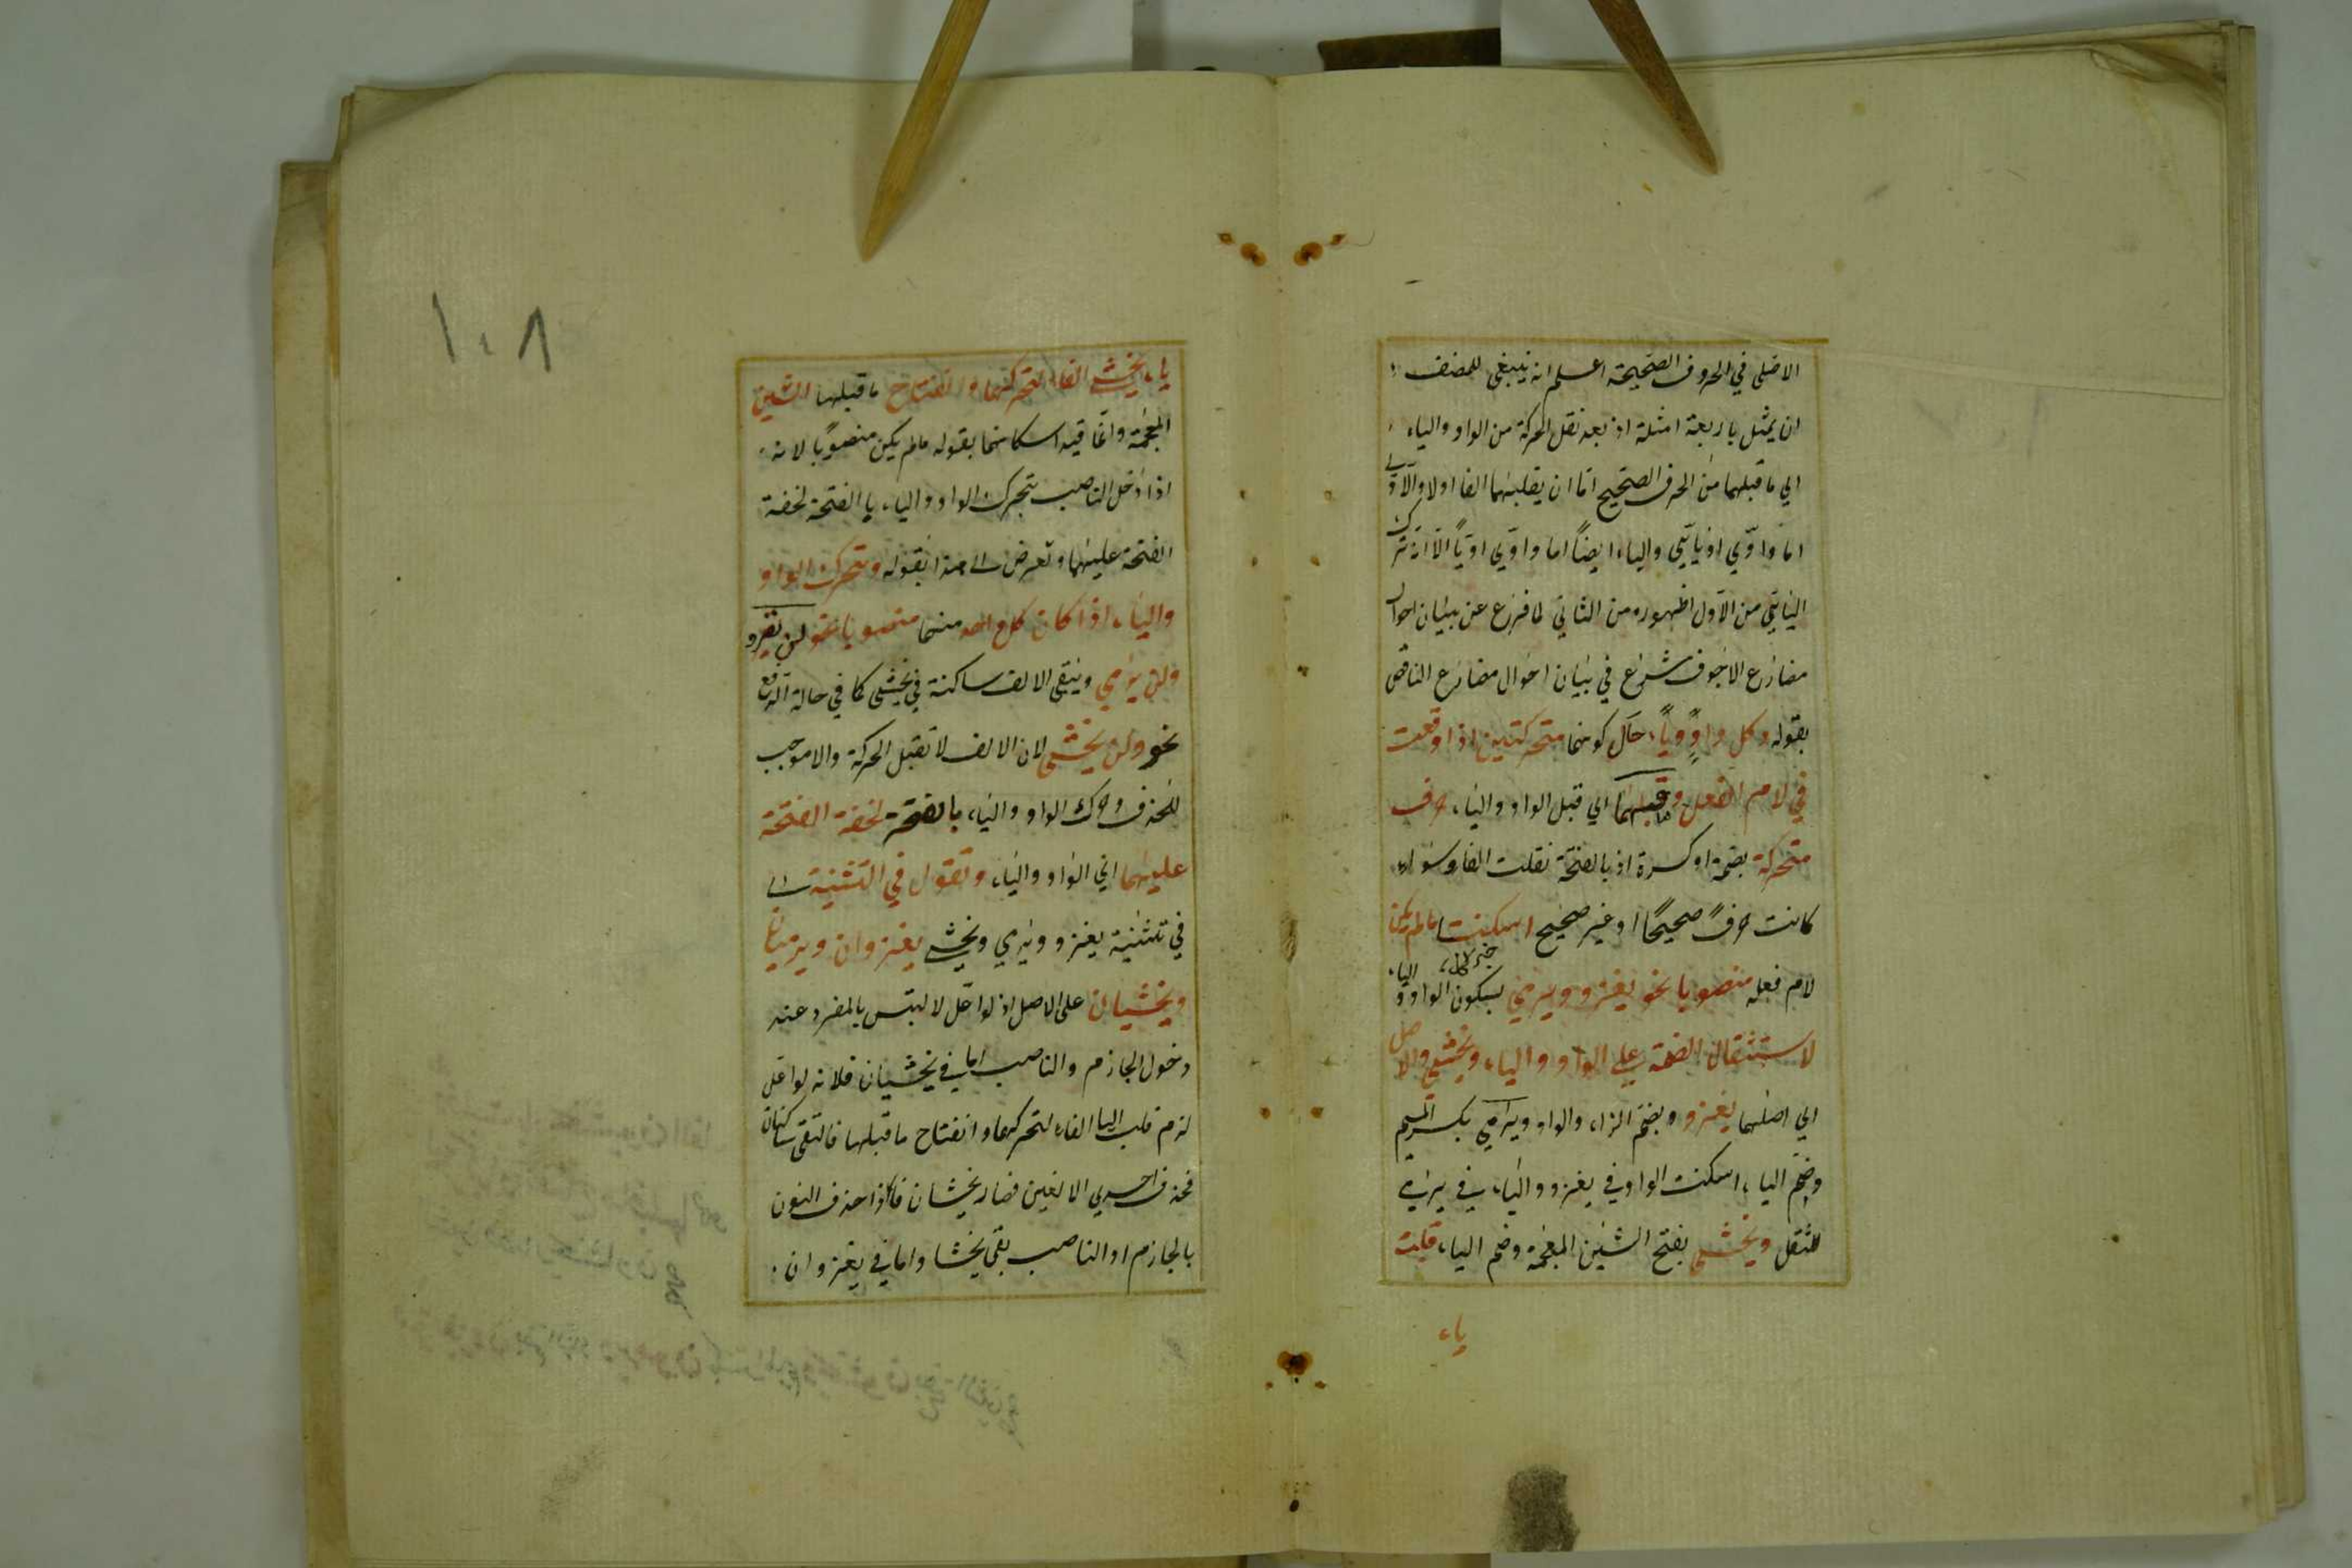 الاصلى في الحروف الصحيحة اعلم انه ينبغى للمصنف
ان يمثل باربعة امثلة اذ بعد نقل الحركة من الواو والياء
الي ما قبلهما من الحرف الصحيح اما ان يقلبهما الفا اولا والاول
اما واوي او يائي والياء ايضاً اما واوي او يا الا انه ترك
اليائي من الاول لظهوره من الثاني لما فرغ عن بيان احوال
مضارع الاجوف شرع في بيان احوال مضارع الناقص
بقوله وكل واوٍ وياء حال كونهما متحركتين اذا وقعت
في لام الفعل وما قبلهما اي قبل الواو والياء حرف
متحركة بضمة او كسرة اذ بالفتحة نقلت الفا وسواء
كانت حرفً صحيحًا او غير صحيح اسكنت ما لم يكن
خبر كل
لام فعله منصوبا نحو يغزو ويرمي بسكون الواو والياء
لاستثقال الضمة على الواو والياء ويخشى والاصل
اي اصلهما يغزو وبضم الزاء والواو ويرمي بكسر الميم
وضم الياء اسكنت الواو في يغزو والياء في يرمي
للثقل ويخشى بفتح الشين المعجمة وضم الياء قلبت
ياء
١٠٨
ياء يخشى الفا لتحركها وانفتاح ما قبلها الشين
المعجمة وانما قيد اسكانهما بقوله ما لم يكن منصوبًا لانه
اذا دخل الناصب يتحرك الواو والياء با الفتحة لخفة
الفتحة عليهما وتعرض الى هذا بقوله وتتحرك الواو
والياء اذا كان كل واحد منهما منصوبا نحو لن يغزو
ولن يرمي ويبقى الالف ساكنة في يخشى كما في حالة الرفع
نحو ولن يخشى لان الالف لا تقبل الحركة والا موجب
للحذف وحرك الواو والياء بالفتحة لخفة الفتحة
عليهما اي الواو والياء وتقول في التثنية اى
في تثنية يغزو ويرمي ويخشى يغزوان ويرميان
ويخشيان على الاصل اذ لو اعل لا لتبس بالمفرد عند
دخول الجازم والناصب اما في يخشيان فلانه لو اعل
لزم قلب اليا الفاء لتحركها وانفتاح ما قبلها فالتقى ساكنان
فحذف احدي الالفين فصار يخشان فاذا حذف النون
بالجازم او الناصب بقى يخشا واما في يغزوان